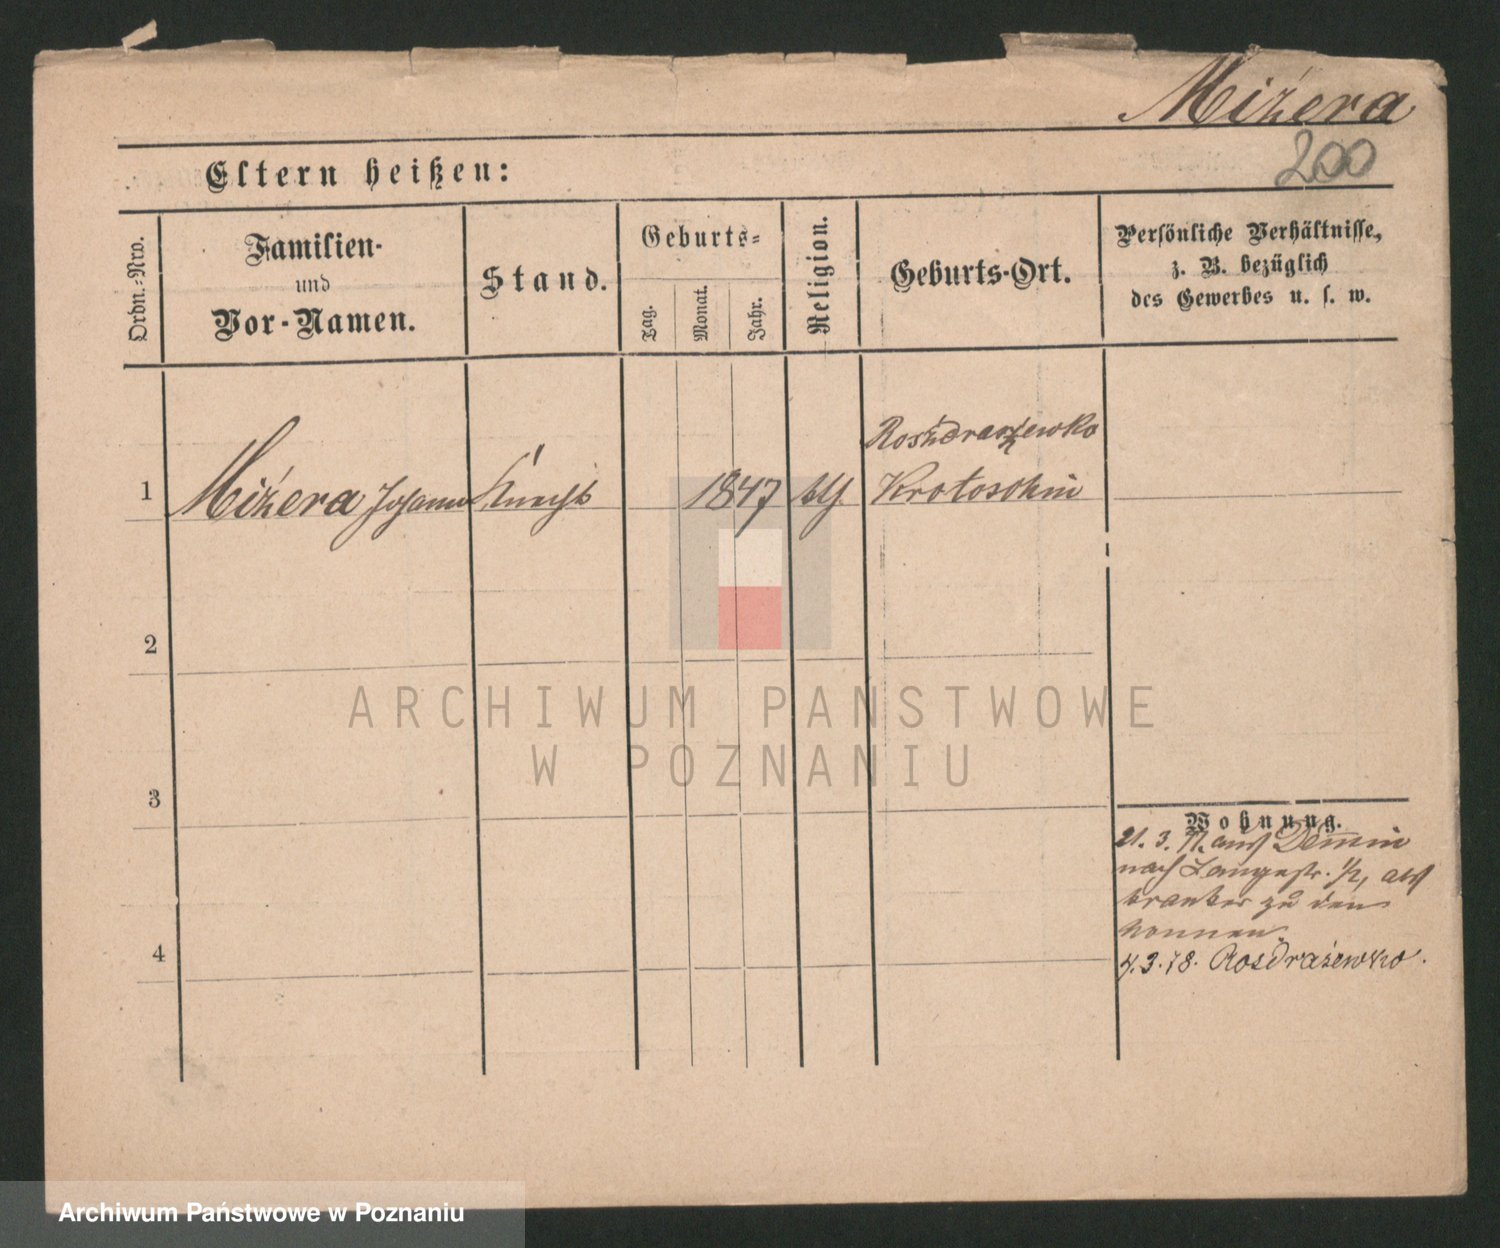 Miżera
200
Eltern heißen:
Ordn.-Nro.
Familien-
und
Vor-Namen.
Stand.
Geburts-
Tag.
Monat.
Jahr.
Religion.
Geburts-Ort.
Persönliche Verhältnisse,
z. B. bezüglich
des Gewerbes u. s. w.
Rosdrażewko
1 Miżera Johann Knecht 1847 Krotoschin
2
3
4
Wohnung.
21. 3. 77. aus
nach Langestr. 1/2, als
kranker zu den
Nonnen.
4.3.78. Rosdrażewko.
ARCHIWUM PAŃSTWOWE
W POZNANIU
Archiwum Państwowe w Poznaniu